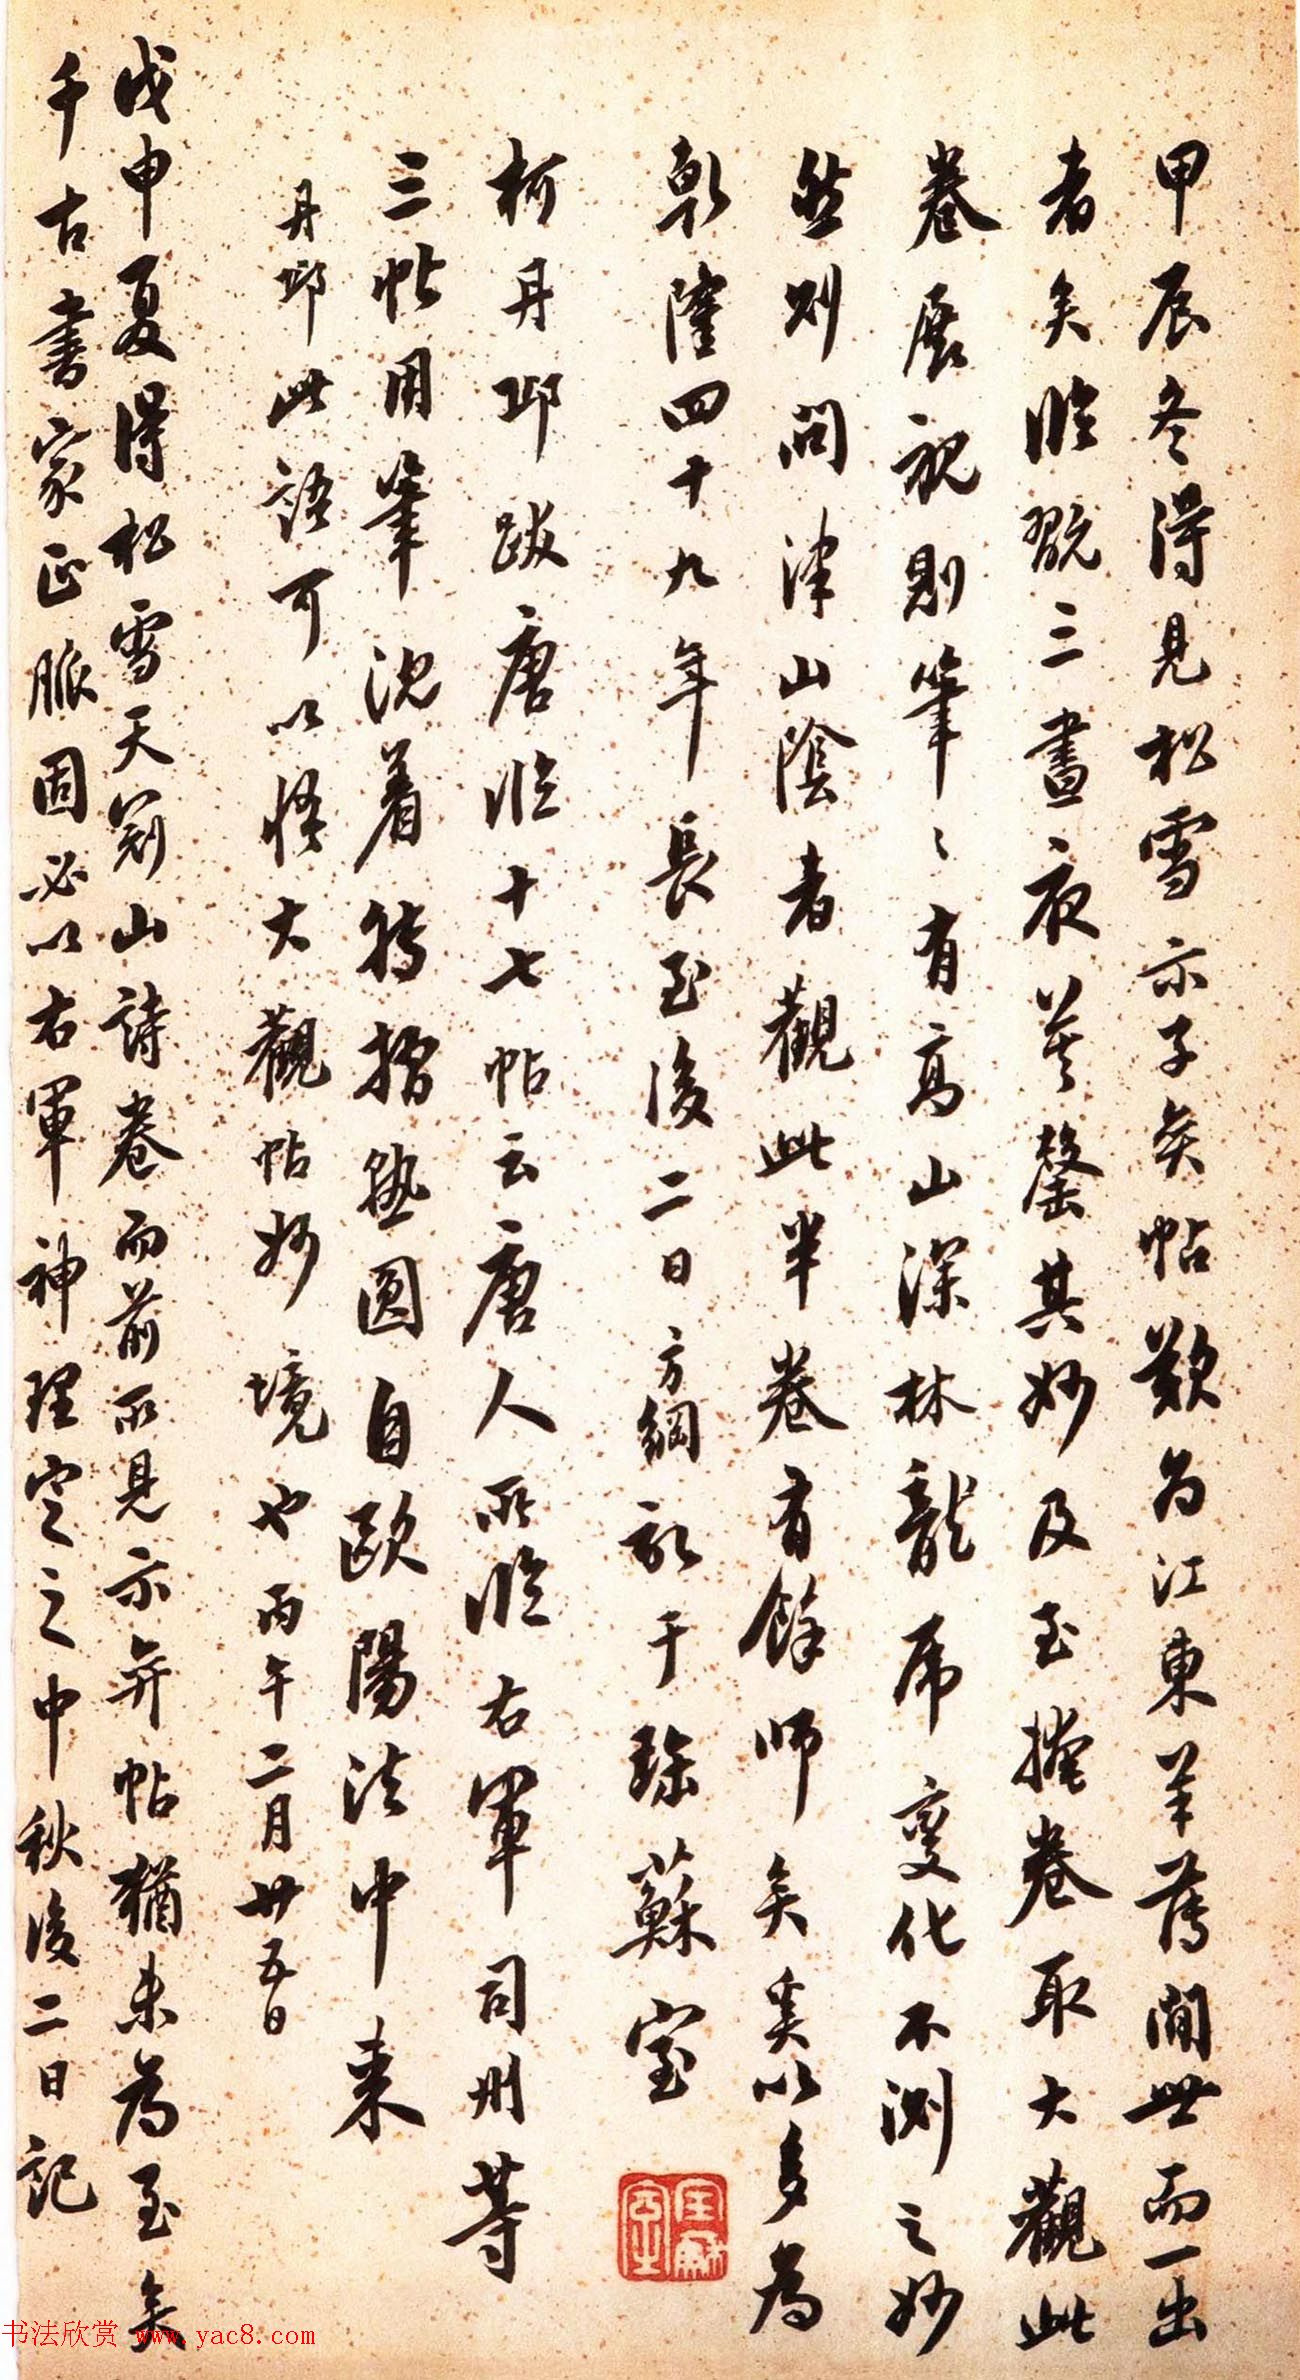 甲辰冬得見松雪示子矣帖歎為江東羊薄間世而一出
者矣臨翫三晝夜莫罄其妙及至掩卷取大觀此
卷展視則筆〻有高山深林龍虎變化不測之妙
然則問津山陰者觀此半卷有餘師矣奚以多為
乾隆四十九年長至後二日方綱記于蘇室
柯丹邱跋唐臨十七帖云唐人所臨右軍司州等
三帖用筆沈着轉摺熟圓自歐陽法中来
丹邱此語可以悟大觀帖妙境也丙午二月廿五日
戊申夏得松雪天冠山詩卷而前所見示弈帖猶未為至矣
千古書家正脈固必以右軍神理定之中秋後二日記
书法欣赏 www.yac8.com